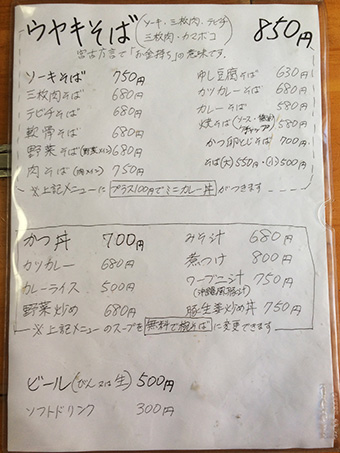 ウヤキそば（ソーキ・三枚肉・テビチ 三枚肉・カマボコ） 850円
宮古方言で「お金持ち」の意味です。
ソーキそば 750円
三枚肉そば 680円
テビチそば 680円
軟骨そば 680円
野菜そば（野菜メイン） 680円
肉そば（肉メイン） 750円
ゆし豆腐そば 630円
カツカレーそば 680円
カレーそば 580円
焼そば（ソース・醤油 ケチャップ） 580円
かつ卵とじそば 700円
そば（大）550円・（小）500円
※上記メニューにプラス100円でミニカレー丼がつきます
かつ丼 700円
カツカレー 680円
カレーライス 500円
野菜炒め 680円
みそ汁 680円
煮つけ 800円
フーフニ汁 750円
豚生姜炒め丼 750円
※上記メニューのスープを無料で椀そばに変更できます
ビール（びん又は生） 500円
ソフトドリンク 300円